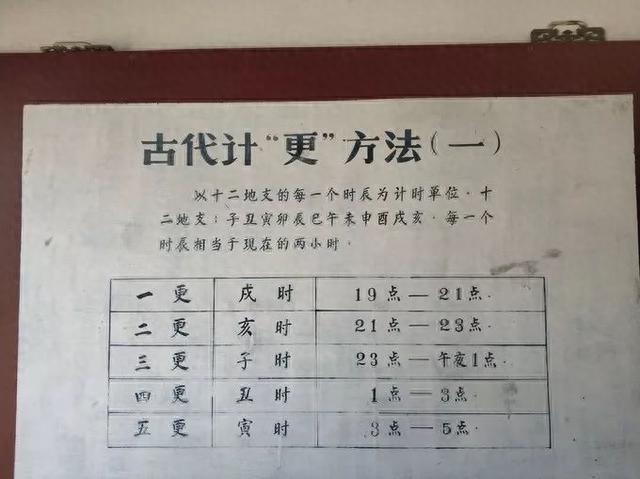 古代计“更”方法(一)
以十二地支的每一个时辰为计时单位.十
二地支:子丑寅卯辰巳午未申酉戌亥.每一个
时辰相当于现在的两小时.
一更 戌时 19点—21点.
二更 亥时 21点—23点.
三更 子时 23点—午夜1点.
四更 丑时 1点—3点.
五更 寅时 3点—5点.